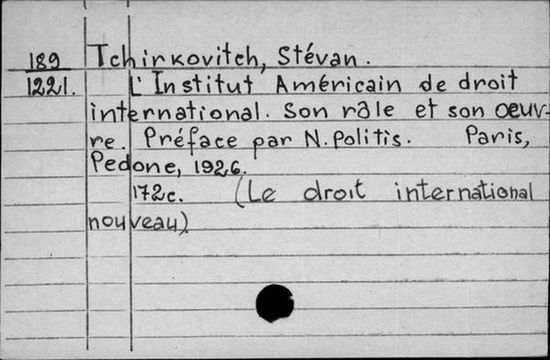 189 Tchirkovitch, Stévan.
1221. L'Institut Américain de droit
international. Son râle et son oeuv-
re. Préface par N. Politis. Paris,
Pedone, 1926.
172c. (Le droit international
nouveau)